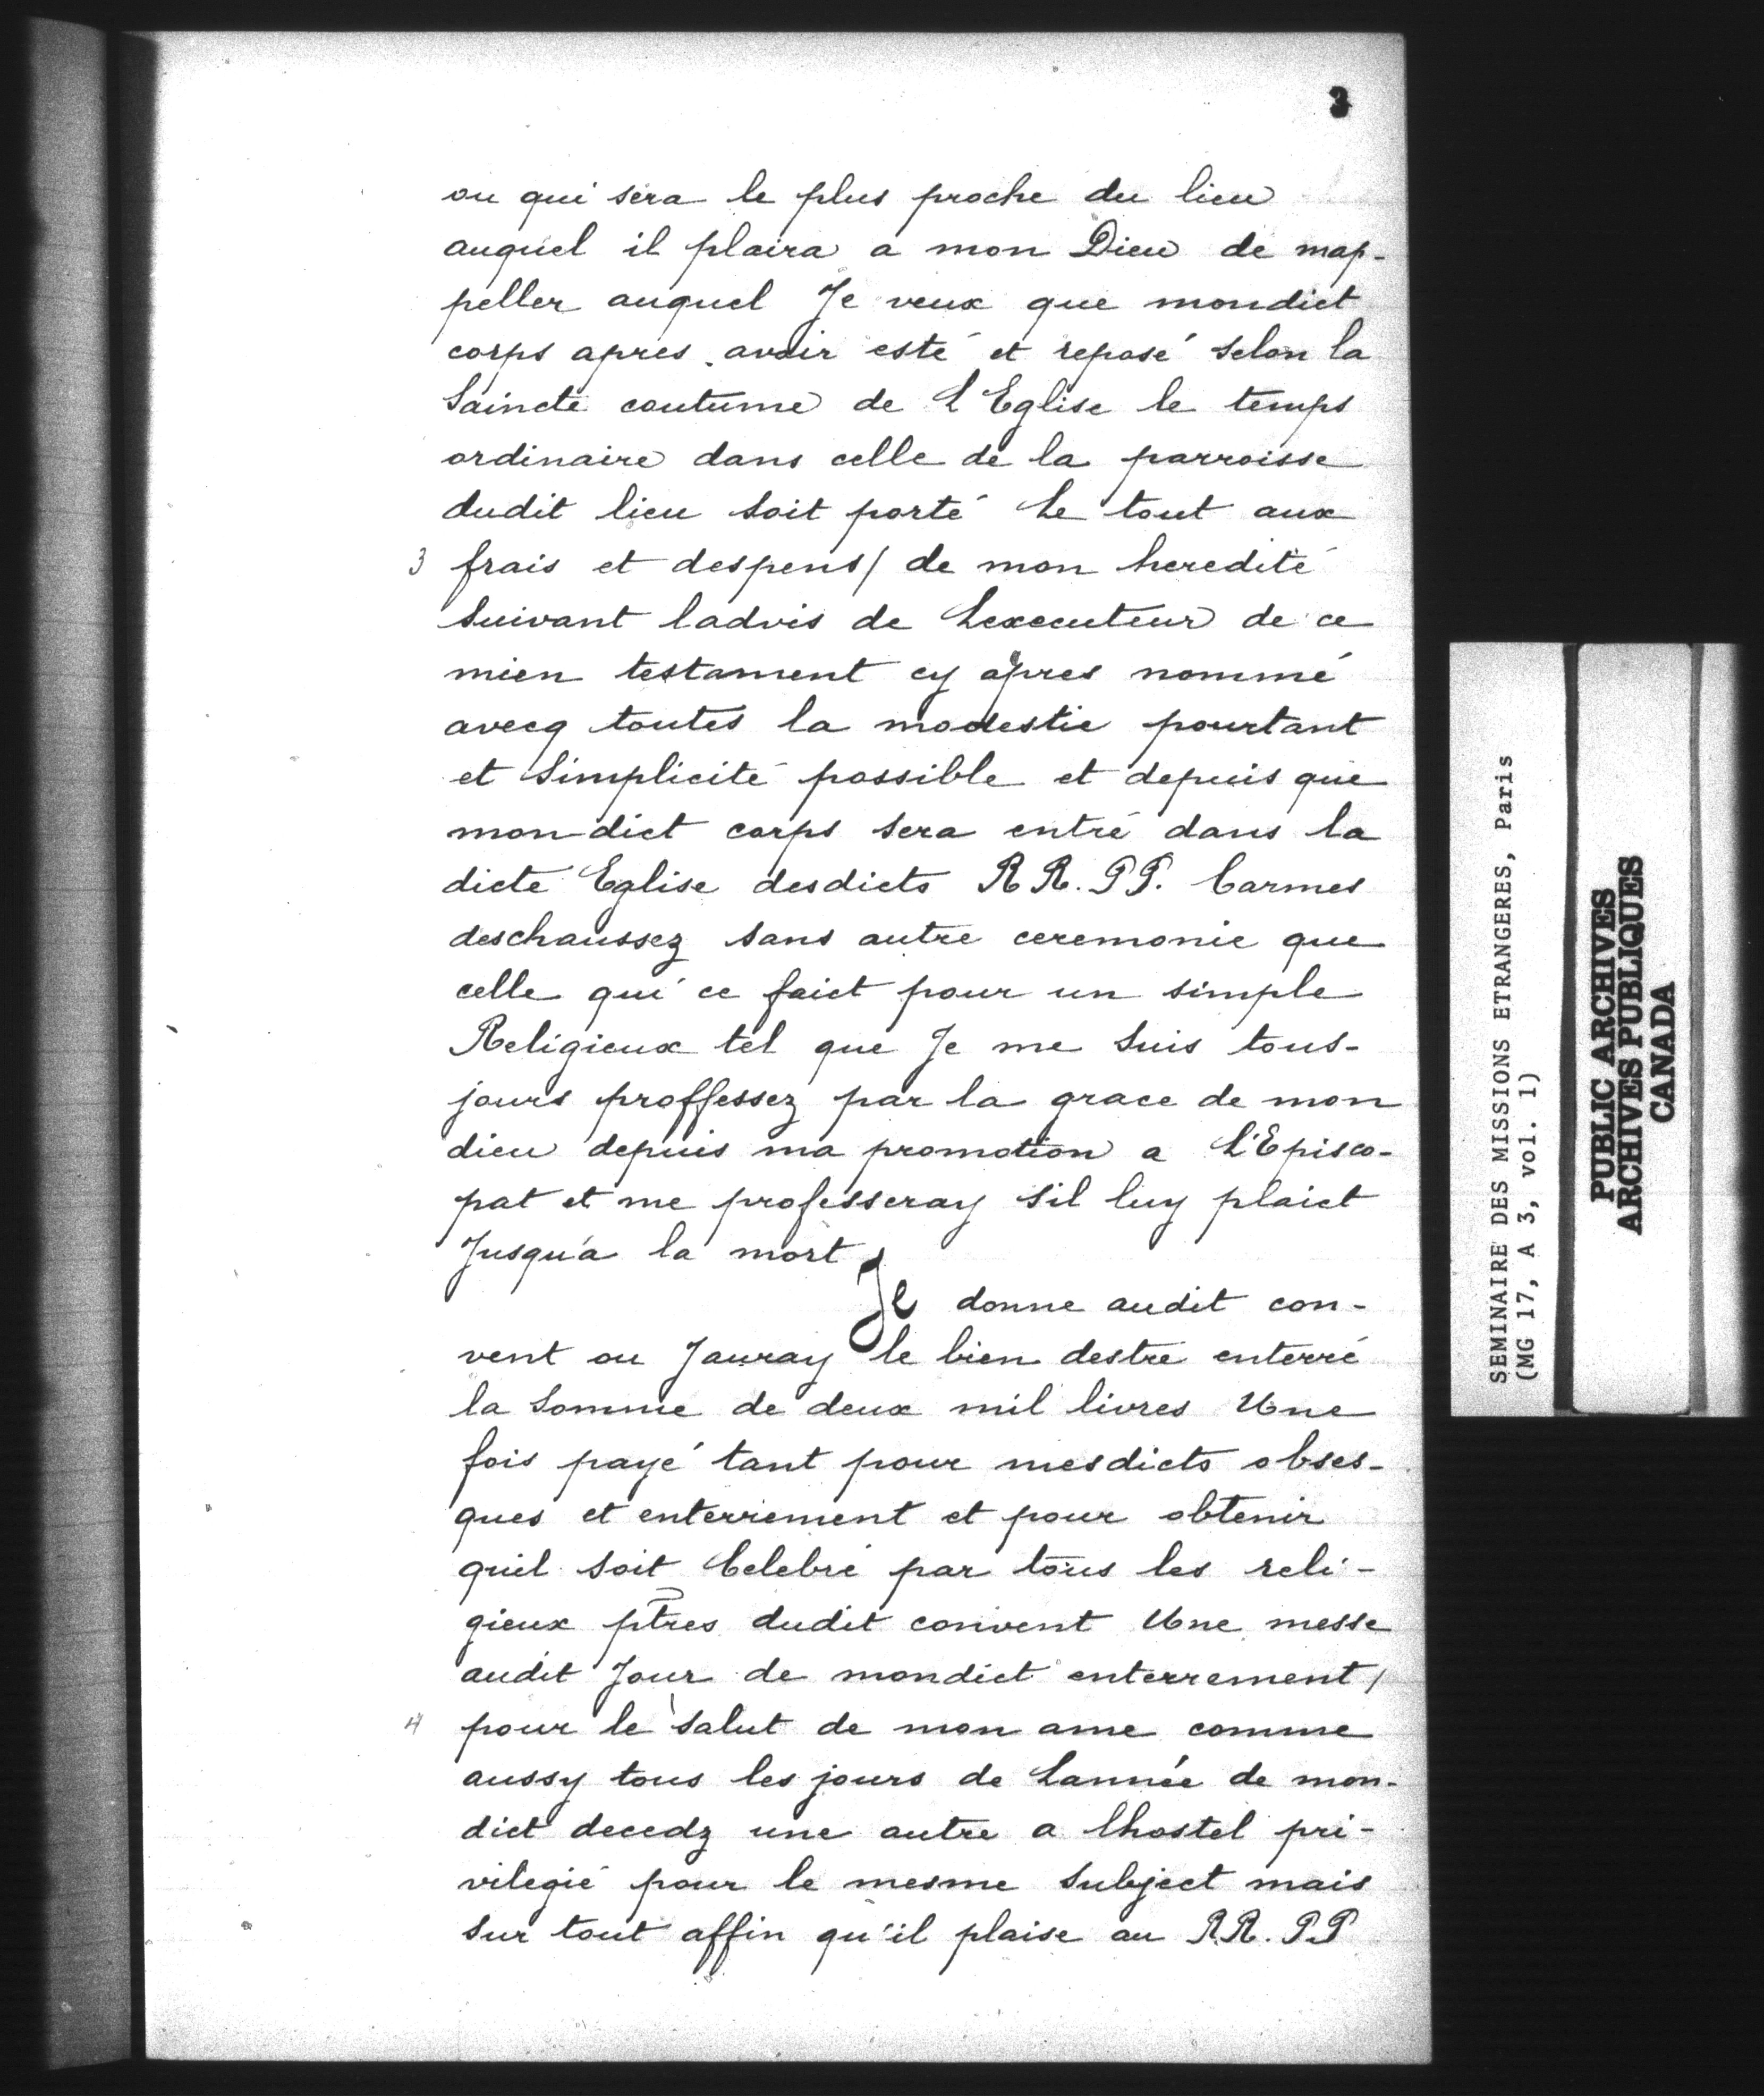 3
ou qui sera le plus proche du lieu
auquel il plaira a mon Dieu de map-
peller auquel Je veux que mondict
corps apres avoir esté et reposé selon la
Saincte coutume de L'Eglise le temps
ordinaire dans celle de la parroisse
dudit lieu soit porté Le tout aux
3 frais et despens/ de mon heredité
Suivant ladvis de Lexecuteur de ce
mien testament cy apres nommé
avecq toutes la modestie pourtant
et Simplicité possible et depuis que
mondict corps sera entré dans la
dicte Eglise desdicts RR. PP. Carmes
deschaussez sans autre ceremonie que
celle qui ce faict pour un simple
Religieux tel que Je me suis tous-
jours proffessez par la grace de mon
dieu depuis ma promotion a L'Episco-
pat et me professeray sil luy plaict
Jusqu'a la mort
Je donne audit con-
vent ou Jauray le bien destre enterré
la Somme de deux mil livres Une
fois payé tant pour mesdicts obses-
ques et enterrement et pour obtenir
quil soit Celebré par tous les reli-
gieux ptres dudit convent Une messe
audit Jour de mondict enterrement/
4 pour le salut de mon ame comme
aussy tous les jours de Lannée de mon-
dict decedz une autre a lhostel pri-
vilegié pour le mesme subject mais
sur tout affin qu'il plaise au RR. PP
SEMINAIRE DES MISSIONS ETRANGERES, Paris
(MG 17, A 3, vol. 1)
PUBLIC ARCHIVES
ARCHIVES PUBLIQUES
CANADA